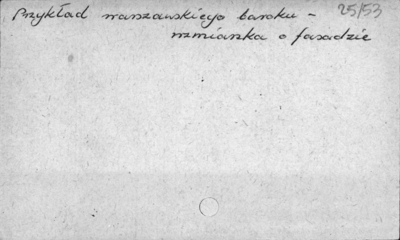 Przykład warszawskiego baroku – 25/53
wzmianka o fasadzie